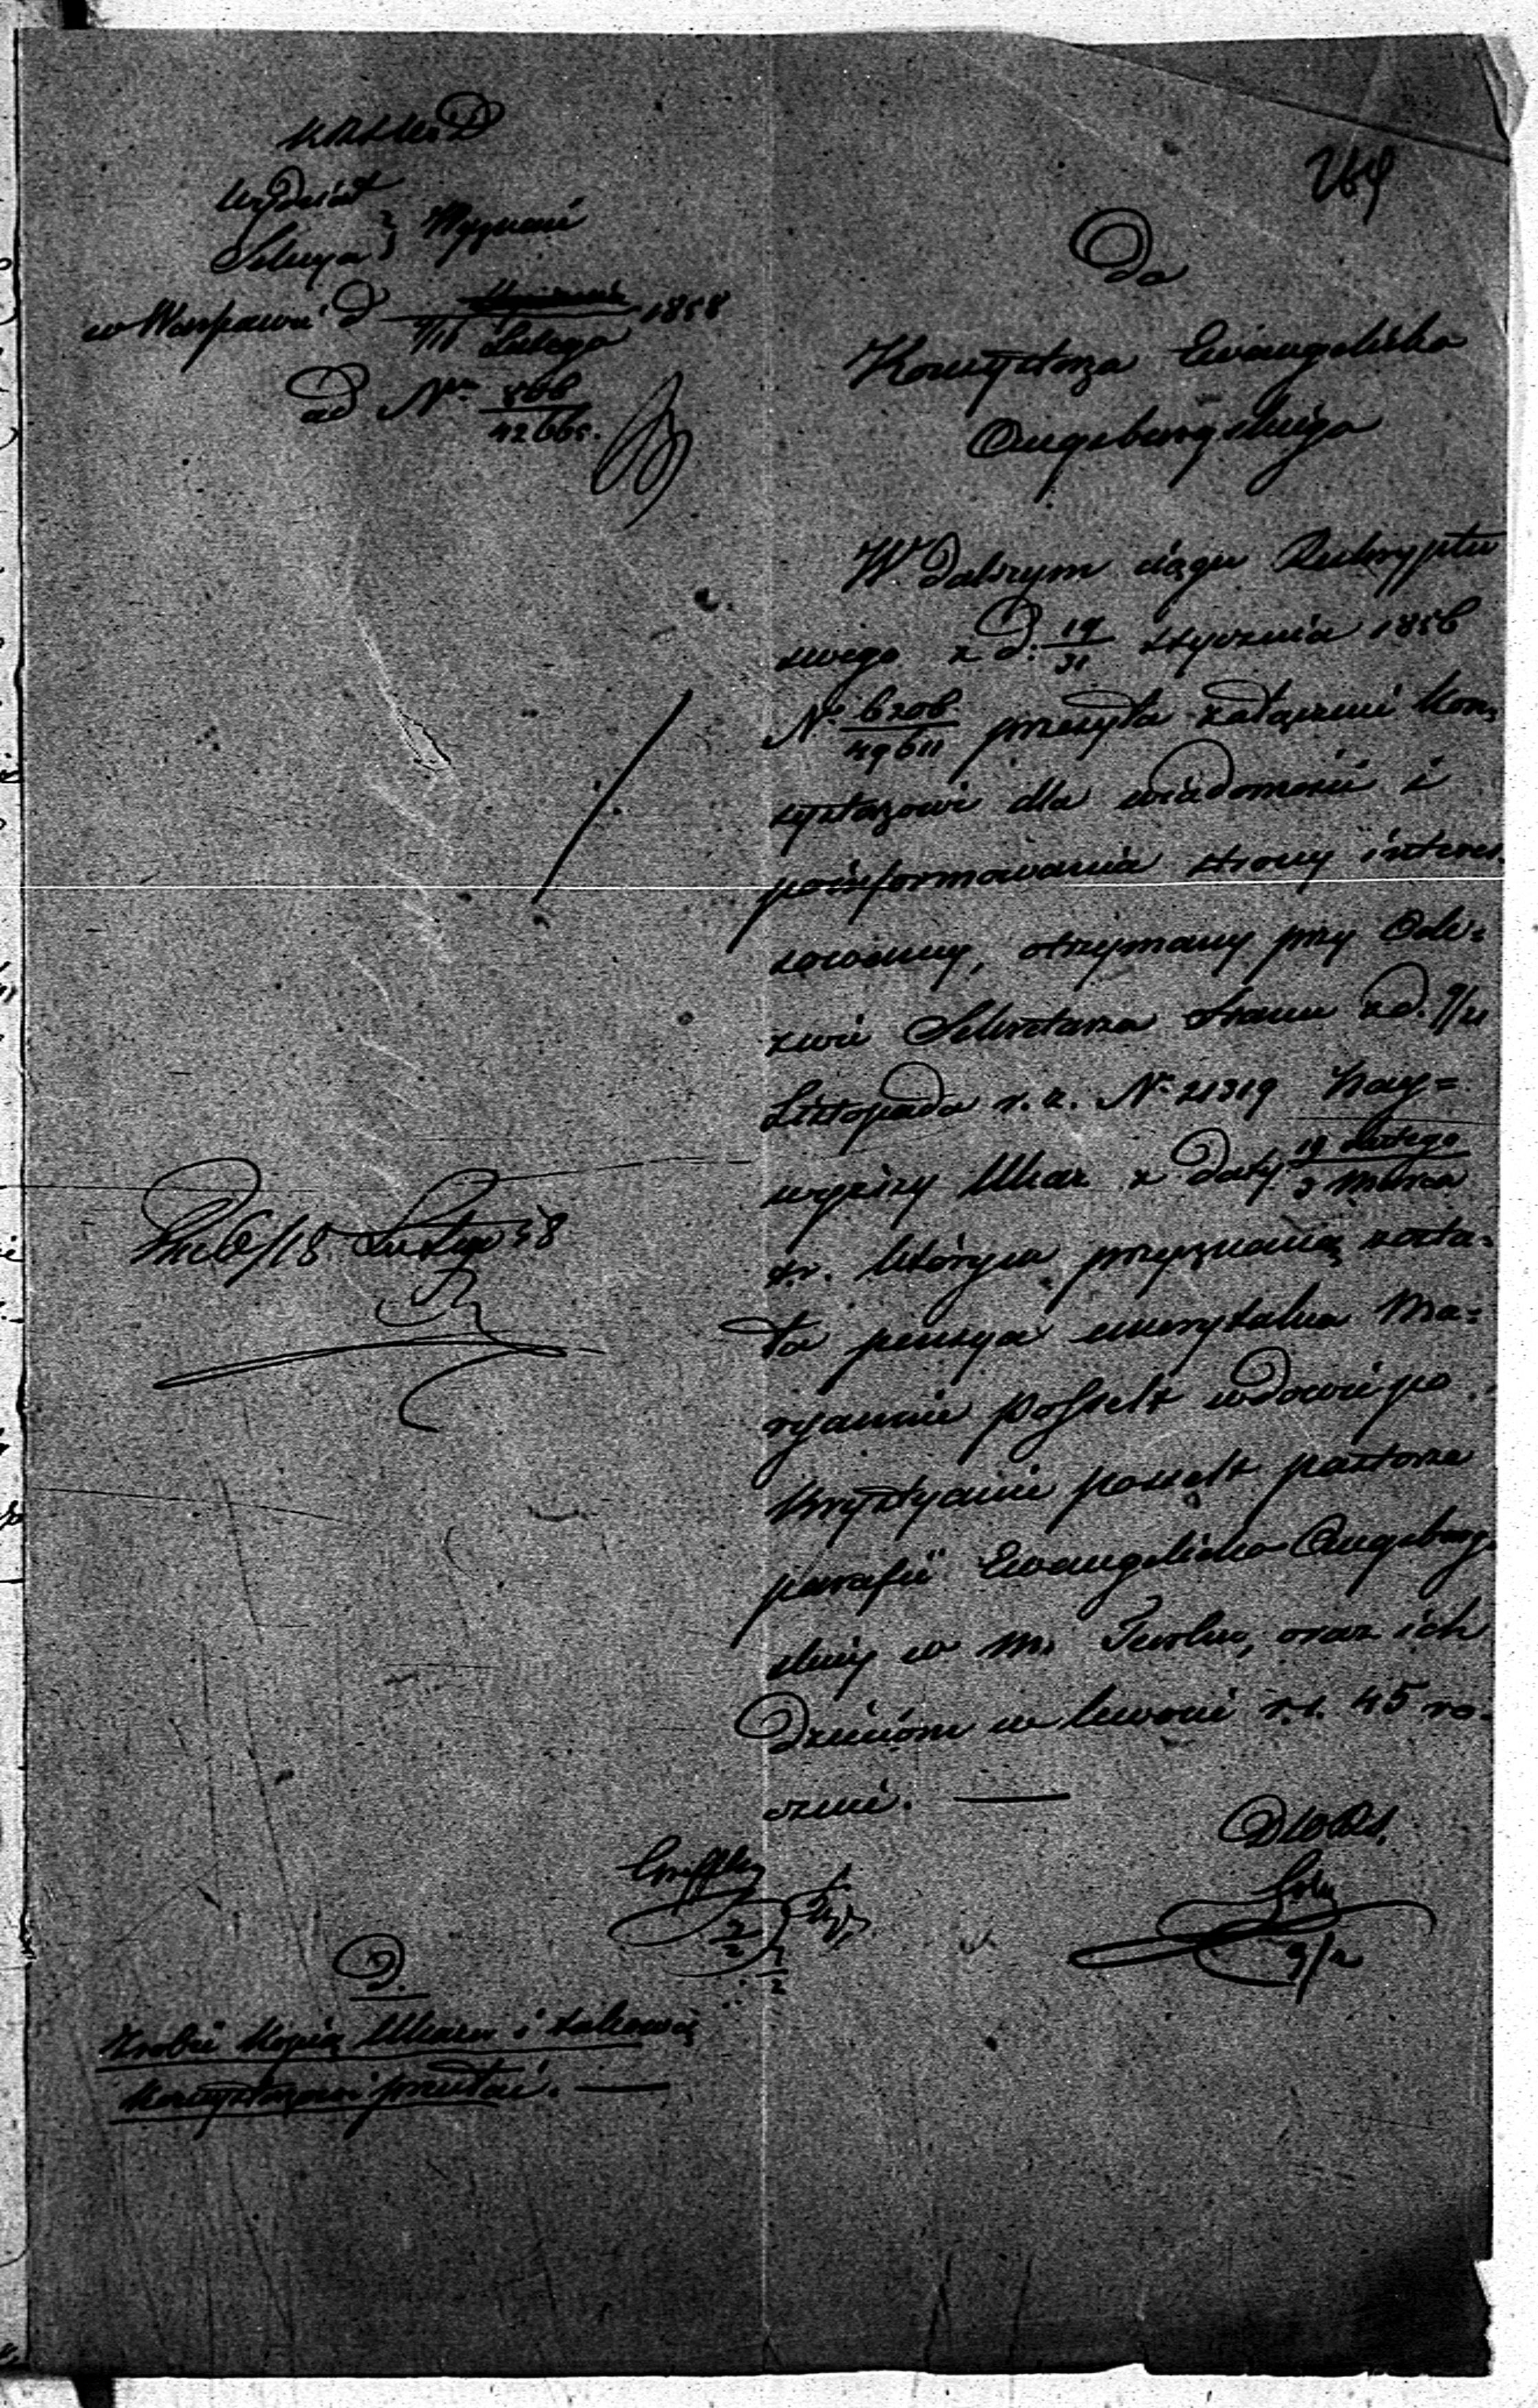 Wydział
Sekcya } Wyznań
w Warszawie d 1858
Lutego
ad Nr
Do
Konsystorza Ewangelicko
Augsburgskiego
W dalszym ciągu Reskryptu
swego z d. 19/31 stycznia 1856
Nr 6208/49611 przesyła załączeniu Kon=
systorzowi dla wiadomości i
poinformowania strony intere=
sowaney, otrzymany przy Ode=
zwie Sekretarza Stanu z d. 9/21
Listopada r. z. Nr 21319 Nay=
wyższy Ukaz z daty 19 Lutego/3 Marca
t. r. którym przyznaną zosta=
ła pensya emerytalna Ma=
ryannie Posselt wdowie po
Krystyanie Posselt pastorze
parafii Ewangelicko Augsburg
skiej w m. oraz ich
Dzieciom w kwocie r. s. 45 ro=
cznie. —
18 Lutego 58
9/2
D.
Zrobić kopią Ukazu i takową
Konsystorzowi przesłać. —